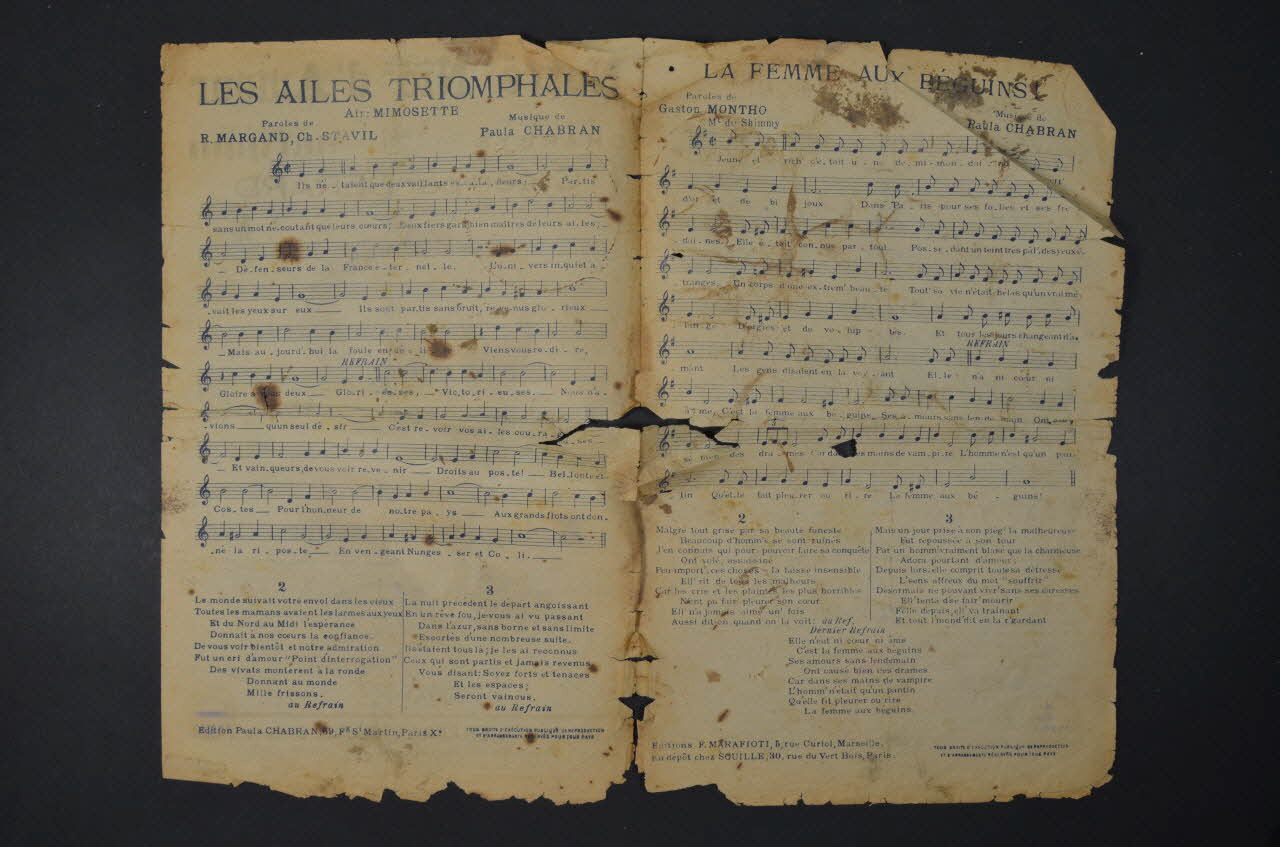 LES AILES TRIOMPHALES
Air: MIMOSETTE
Paroles de
R. MARGAND, Ch. STAVIL
Musique de
Paula CHABRAN
Ils n'é-taient que deux vaillants es-ca-la-deurs; Par-tis
sans un mot ne-coutant que leurs cœurs; Deux fiers gars bien maîtres de leurs ai-les;
Dé-fen-seurs de la France é-ter-nel-le. L'u-ni-vers in-quiet a-
vait les yeux sur eux Ils sont par-tis sans bruit, re-ve-nus glo-rieux
Mais au-jourd'hui la foule en Viens vous re-di-re,
REFRAIN
Gloire à deux Glo-ri-eu-ses, Vic-to-ri-eu-ses. Nous n'a-
vions qu'un seul dé-sir C'est re-voir vos ai-les cou-ra-
Et vain-queurs, de vous voir re-ve-nir Droits au pos-te! Bel-lonte et
Cos-tes Pour l'hon-neur de no-tre pa-ys Aux grands flots ont don-
né la ri-pos-te En ven-geant Nunges-ser et Co-li
2
Le monde suivait votre envol dans les cieux
Toutes les mamans avaient les larmes aux yeux
Et du Nord au Midi l'espérance
Donnait à nos cœurs la confiance.
De vous voir bientôt et notre admiration
Fut un cri d'amour "Point d'interrogation"
Des vivats montèrent à la ronde
Donnant au monde
Mille frissons.
au Refrain
3
La nuit précédent le départ angoissant
En un rêve fou, je vous ai vu passant
Dans l'azur, sans borne et sans limite
Escortés d'une nombreuse suite.
Ils étaient tous là; je les ai reconnus
Ceux qui sont partis et jamais revenus
Vous disant: Soyez forts et tenaces
Et les espaces;
Seront vaincus.
au Refrain
Edition Paula CHABRAN, 89, Fg St Martin, Paris Xe
TOUS DROITS D'EXÉCUTION PUBLIQUE DE REPRODUCTION
ET D'ARRANGEMENTS RÉSERVÉS POUR TOUS PAYS
LA FEMME AUX BÉGUINS!
Paroles de
Gaston MONTHO
Mt de Shimmy
Musique de
Paula CHABRAN
Jeune et rich' c'é-tait u-ne de-mi-mon-dai-
d'or et de bi-joux Dans Pa-ris pour ses fo-lies et ses fre-
dai-nes. Elle é-tait con-nue par-tout. Pos-sé-dant un teint très pâl', des yeux é-
tranges. Un corps d'une ex-trêm' beau-té. Tout' sa vie n'était hélas qu'un vrai mé-
lan-ge D'orgies et de vo-lup-tés. Et tous les jours changeant d'a-
REFRAIN
mant Les gens disaient en la voy-ant El-le n'a ni cœur ni
â-me, C'est la femme aux bé-guins, Ses a-mours sans len-de-main Ont
bien des dra-mes Car dans ses mains de vam-pi-re L'homme n'est qu'un pan-
tin Qu'el-le fait pleu-rer ou ri-re La femme aux bé-guins!
2
Malgré tout grisé par sa beauté funeste
Beaucoup d'homm's se sont ruinés
J'en connais qui pour pouvoir faire sa conquête
Ont volé, assassiné
Peu import', ces choses la laisse insensible
Ell' rit de tous les malheurs
Car les crie et les plaintes les plus horribles
N'ont pu fair' pleurer son cœur
Ell' n'a jamais aimé un' fois
Aussi dit-on quand on la voit: au Ref.
3
Mais un jour prise à son pièg' la malheureuse
Fut repoussée à son tour
Par un homm' vraiment blasé que la charmeuse
Adora pourtant d'amour;
Depuis lors, elle comprit toute sa détresse
L'sens affreux du mot "souffrir"
Désormais ne pouvant vivr' sans ses caresses
Ell' tenta de se fair' mourir
Folle depuis, ell' va traînant
Et tout l'mond' dit en la r'gardant
Dernier Refrain
Elle n'eut ni cœur ni âme
C'est la femme aux béguins
Ses amours sans lendemain
Ont causé bien des drames
Car dans ses mains de vampire
L'homm' n'était qu'un pantin
Qu'elle fit pleurer ou rire
La femme aux béguins.
Editions F. MARAFIOTI, 5, rue Curiol, Marseille.
En dépôt chez SOUILLE, 30, rue du Vert Bois, Paris.
TOUS DROITS D'EXÉCUTION PUBLIQUE DE REPRODUCTION
ET D'ARRANGEMENTS RÉSERVÉS POUR TOUS PAYS